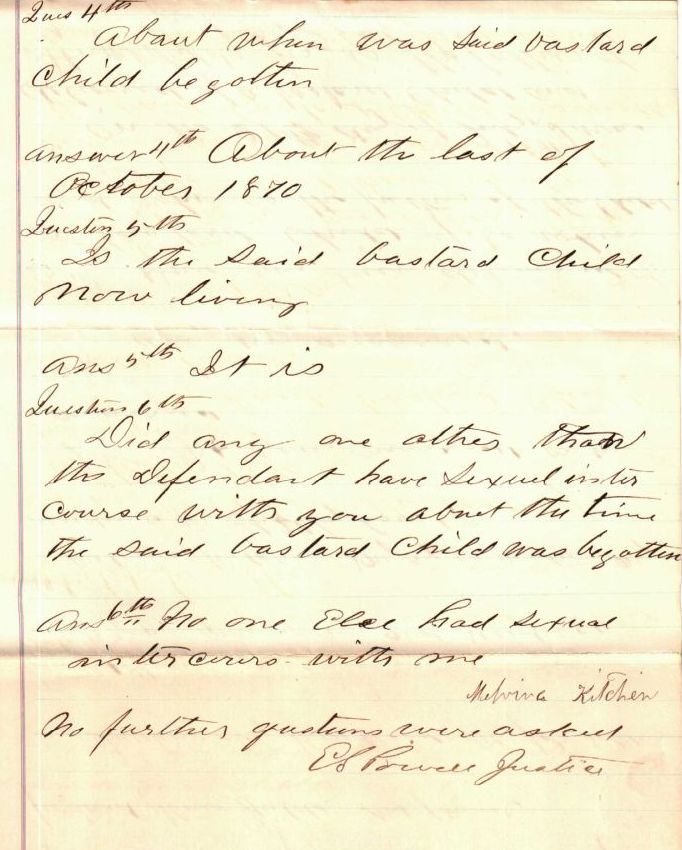 Ques 4th
About when was said bastard
Child begotten
answer 4th About the last of
October 1870
Question 5th
Is the said bastard Child
now living
Ans 5th It is
Question 6th
Did any one other than
the Defendant have sexuel inter
course with you about the time
the said bastard Child was begotten
Ans 6th No one Else had sexual
intercours with me
Melvina Kitchen
No further questions were asked
E S Powell Justice